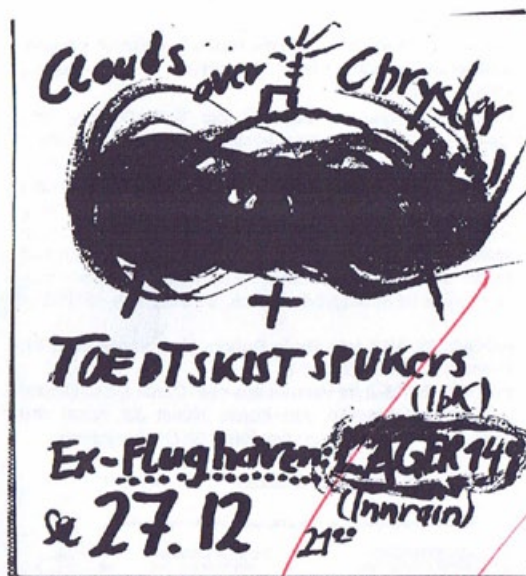 Clouds over Chrysler
+
TOEDTSKISTSPUKers
(IbK)
Ex-Flughaven: LAGER 149
(Innrain)
sa 27.12 21⁰⁰